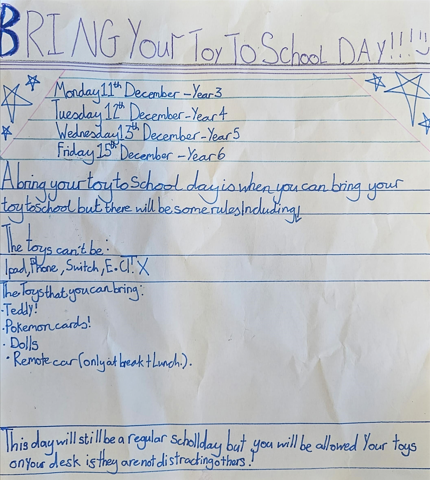 BRING Your Toy To School DAY!!!!
Monday 11th December - Year 3
Tuesday 12th December - Year 4
Wednesday 13th December - Year 5
Friday 15th December - Year 6
A bring your toy to School day is when you can bring your
toy to school but there will be some rules Including!
The toys can't be:
Ipad, Phone, Switch, E.Ct! X
The Toys that you can bring:
· Teddy!
· Pokemon cards!
· Dolls
· Remote car (only at break + Lunch.).
This day will still be a regular scholl day but you will be allowed Your toys
on your desk is they are not distracting others!